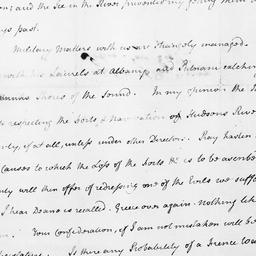 and the Ice in the River prevented my going
ys past.
Military Matters with us are strangely managed.
with his Laurels at Albany, and Putnam catching
Shores of the Sound. In my opinion the
respecting the Forts & Navigation of Hudsons River
if at all, unless under other Directors. Pray hasten
Causes to which the Loss of the Forts &c is to be ascribed
will then offer of redressing one of the Evils we suffer
I hear Deane is recalled. Greece over again. Nothing like
Your Confederation, if I am not mistaken will be
Is there any Probability of a French